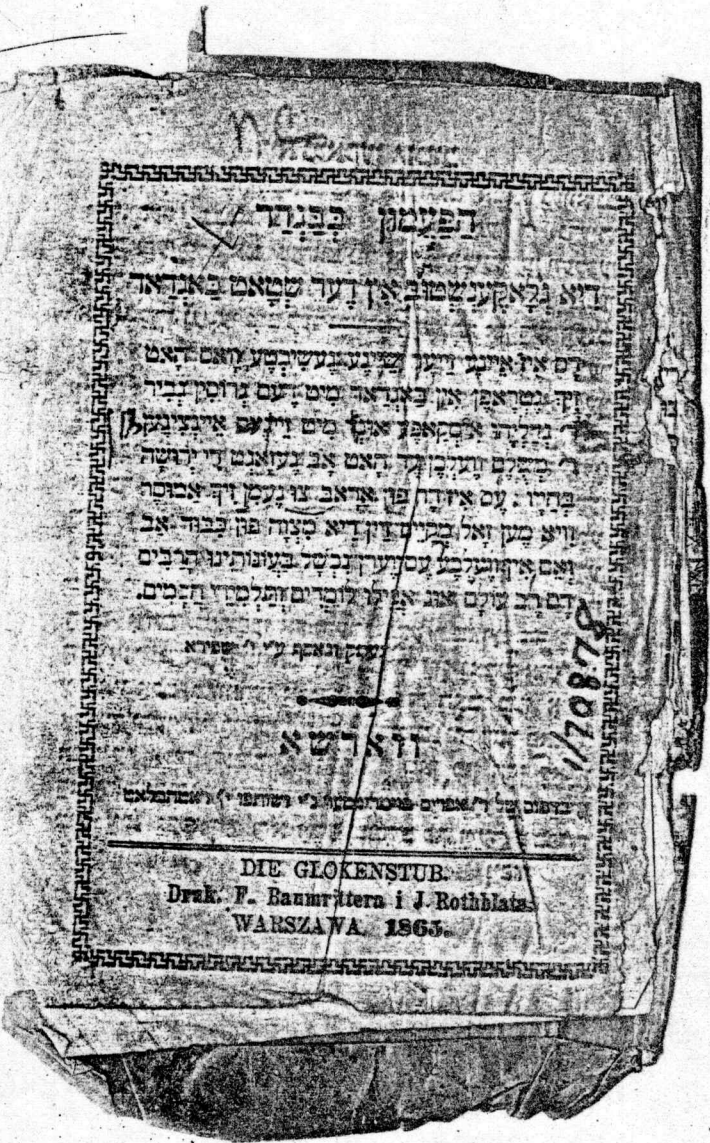 הַפַּעֲמוֹן בְּבַּגְדַד
דִיא גְלָאקֶענְשְׁטוּבּ אִין דֶער שְׁטָאט בַּאגְדַאד
דָס אִיז אַיינֶע זייער שיינֶע גֶעשִׁיכְטֶע וָואס הָאט
זִיךְ גִטְרָאפֶן אִין בַּאגְדַאד מִיט דֶעם גְרוֹסִין גְבִיר
ר' גְדַלְיָה אִיז מִיט אַיינְצִיגֶן
ר' מְשֻׁלָם וֶועלְכֶן עֶר הָאט אָבּ גֶעזָאגְט דִי יְרוּשָׁה
בְּחַיָיו. עֶס אִיז דָא פוּן אַרָאבּ צוּ נֶעמֶן זִיךְ אַ מוּסַר
וויא מֶען זָאל מְקַיֵים זַיין דִיא מִצְוָה פוּן כִּבּוּד אַב
וָאס אִין וֶועלְכֶע עֶס וֶוערְן נִכְשָׁל בַּעֲוֹנוֹתֵינוּ הָרַבִּים
דֶס רֹב עוֹלָם אוּנ אֲפִילוּ לוֹמְדִים וְתַלְמִידֵי חֲכָמִים.
נעתק ונאסף ע״י ר' שפירא
ווארשא
בדפוס של ר' אפרים ושותפו ראטהבלאט
DIE GLOKENSTUB.
Druk. F. Baumrittera i J. Rothblata.
WARSZAWA. 1865.
1/70878